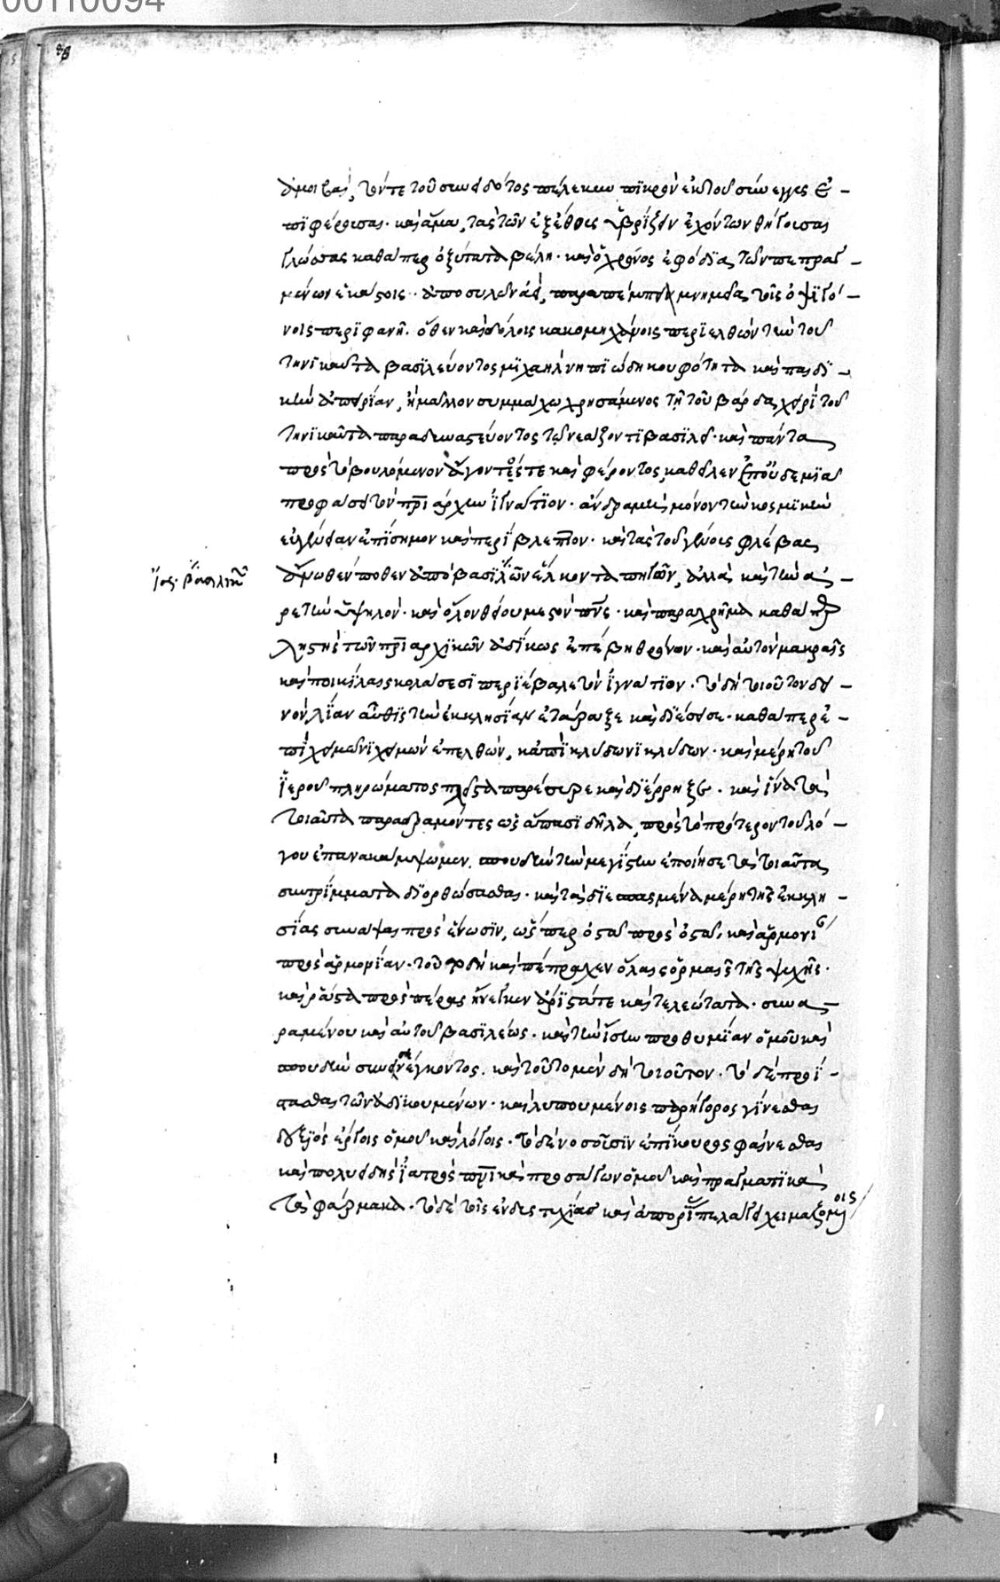 00110094
ἀμοιβαί, τόν τε τοῦ συνειδότος πέλεκυν πικρὸν ἐκ τοῦ σύνεγγυς ἐ-
πιφέρουσαι. καὶ ἅμα, τὰς τῶν ἐξ ἔθους ὑβρίζειν ἐχόντων θήγουσαι
γλώσσας καθάπερ ὀξύτατα βέλη. καὶ ὁ χρόνος ἐφόδια τῶν πεπραγ-
μένων ἑκάστοις. παραπέμπει μνημεῖα τοῖς ὀψιγό-
νοις περιφανῆ. ὅθεν καὶ δόλοις κακομηχάνοις περιελθὼν τὴν τοῦ
τηνικαῦτα βασιλεύοντος μιχαὴλ νηπιώδη κουφότητα καὶ παιδι-
κὴν ἀπειρίαν, ἢ μᾶλλον συμμάχω χρησάμενος τῆ τοῦ βάρδα χειρὶ τοῦ
τηνικαῦτα παραδυναστεύοντος τῶ νεάζοντι βασιλεῖ. καὶ πάντα
πρὸς τὸ βουλόμενον ἄγοντός τε καὶ φέροντος, καθεῖλεν ἐπ' οὐδεμιᾶ
προφάσει τὸν πατριάρχην ἰγνάτιον. ἄνδρα μὴ μόνον τὴν κοσμικὴν
εὐγένειαν ἐπίσημον καὶ περίβλεπτον. καὶ τὰς τοῦ γένους φλέβας
ἄνωθέν ποθεν ἀπὸ βασιλείων ἕλκοντα πηγῶν, ἀλλὰ καὶ τὴν ἀ-
ἱστ. βασιλικῶν
ρετὴν ὑψηλόν. καὶ ὅλον θείου μεστὸν πνεύματος. καὶ παραχρῆμα καθάπερ
ληστὴς τῶν πατριαρχικῶν ἀδίκως ἐπέβη θρόνων. καὶ αὐτὸν μακραῖς
καὶ ποικίλαις κολάσεσι περιέβαλε τὸν ἰγνάτιον. τὸ δὴ τοιοῦτον δει-
νόν, λίαν αὖθις τὴν ἐκκλησίαν ἐτάραξε καὶ διέσεισε. καθάπερ ἐ-
πὶ χειμῶνι χειμὼν ἐπελθών, κἀπὶ κλύδωνι κλύδων. καὶ μέρη τοῦ
ἱεροῦ πληρώματος πλεῖστα παρέσυρε καὶ διέρρηξε. καὶ ἵνα τὰ
τοιαῦτα παραδραμόντες ὡς ἅπασι δῆλα, πρὸς τὸ πρότερον τοῦ λό-
γου ἐπανακάμψωμεν. σπουδὴν τὴν μεγίστην ἐποίησε τὰ τοιαῦτα
συντρίμματα διορθώσασθαι. καὶ τὰ διεσπασμένα μέρη τῆς ἐκκλη-
σίας συνάψαι πρὸς ἕνωσιν, ὥσπερ ὀστᾶ πρὸς ὀστᾶ, καὶ ἁρμονίαν
πρὸς ἁρμονίαν. τοῦτο δὴ καὶ πέπραχεν ὅλαις ὁρμαῖς τῆς ψυχῆς.
καὶ ῥᾷστα πρὸς πέρας ἤνεγκεν ἄριστά τε καὶ τελεώτατα. συνα-
ραμένου καὶ αὐτοῦ βασιλέως. καὶ τὴν ἴσην προθυμίαν ὁμοῦ καὶ
σπουδὴν συνεισενέγκοντος. καὶ τοῦτο μὲν δὴ τοιοῦτον. τὸ δὲ προΐ-
στασθαι τῶν ἀδικουμένων. καὶ λυπουμένοις παρήγορος γίνεσθαι
δεξιὸς ἔργοις ὁμοῦ καὶ λόγοις. τὸ δὲ νοσοῦσιν ἐπίκουρος φαίνεσθαι
καὶ πολυειδὴς ἰατρὸς καὶ προσάγων ὁμοῦ καὶ πραγματικὰ
τὰ φάρμακα. τὸ δὲ τοῖς ἐνδείας τυχίας καὶ ἀπορίας πελάγει χειμαζομένοις